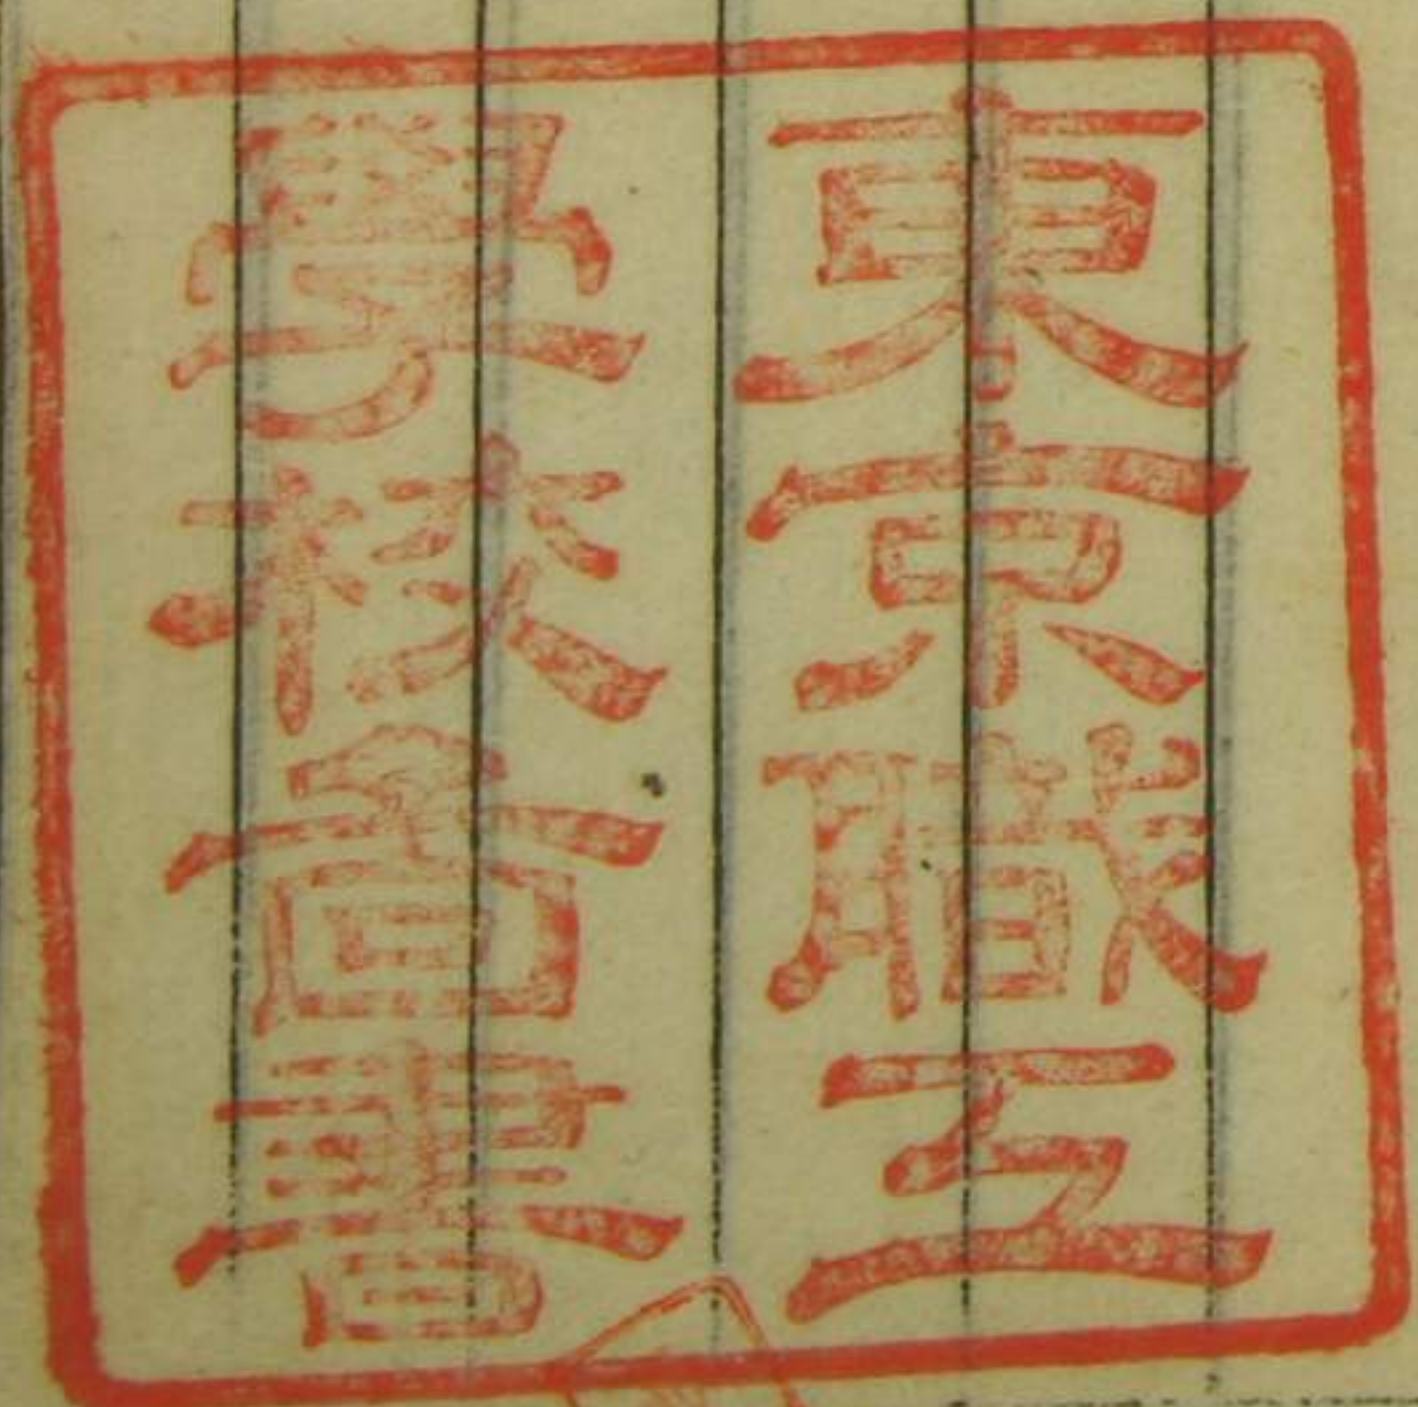 東京職工
學校啚書